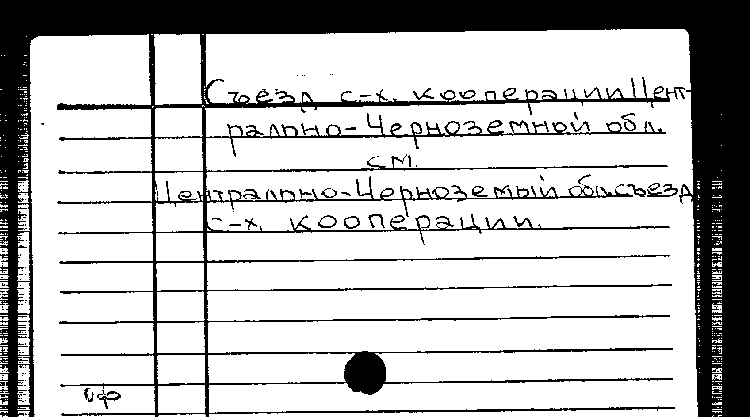 Съезд с-х. кооперации Цент-
рально-Черноземной обл.
см.
Центрально-Черноземый обл.съезд
с-х. кооперации.